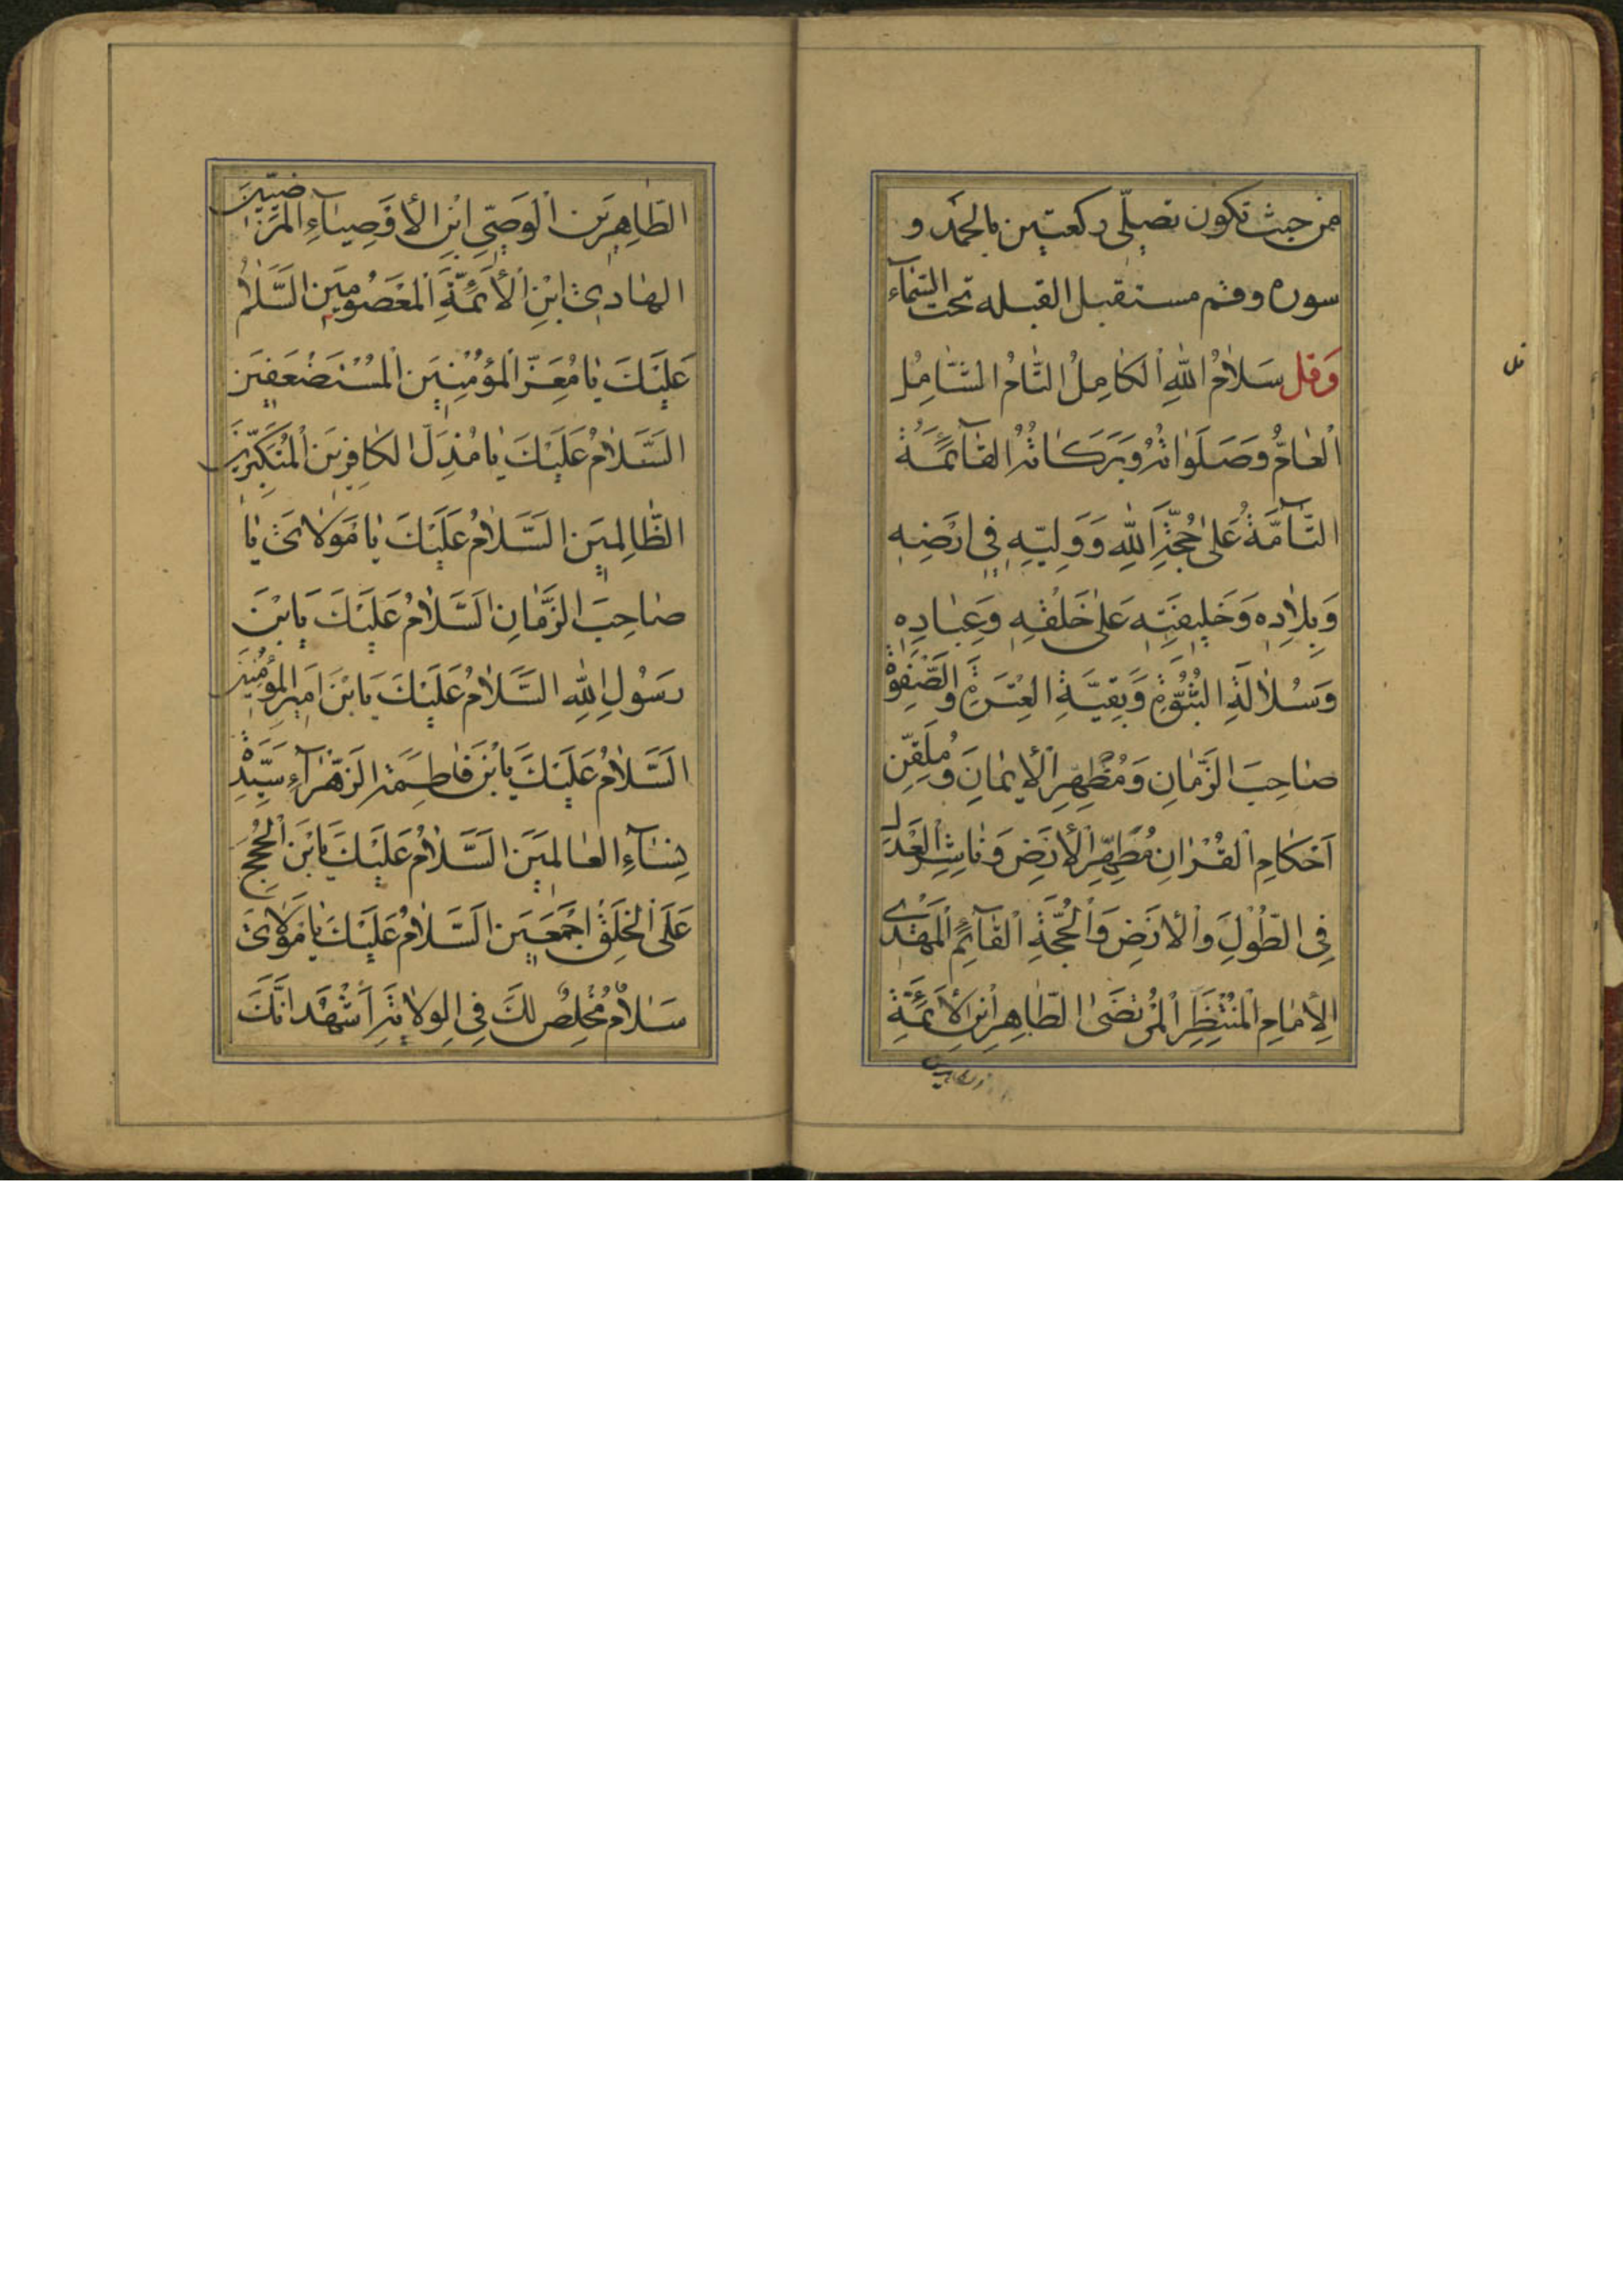 من حیث تکون تصلّی رکعتین بالحمد و
سوره وقم مستقبل القبله تحت السّمآء
وَقل سَلاٰمُ اللّٰهِ الْکٰامِلُ التّٰامُ الشّٰامِلُ
قل
الْعٰامُّ وَصَلَوٰاتُهُ وَبَرَکٰاتُهُ القٰآئِمَةُ
التّٰآمَّةُ عَلیٰ حُجَّةِ اللّٰهِ وَوَلِیِّهِ فِی اَرْضِهِ
وَبِلاٰدِهِ وَخَلِیفَتِهِ عَلیٰ خَلْقِهِ وَعِبٰادِهِ
وَسُلاٰلَةِ النُّبُوَّةِ وَبَقِیَّةِ الْعِتْرَةِ وَالصَّفْوَةِ
صٰاحِبِ الزَّمٰانِ وَمُظْهِرِ الْأِیمٰانِ وَمُلَقِّنِ
اَحْکٰامِ الْقُرْاٰنِ مُطَهِّرِ الْأَرْضِ وَنٰاشِرِ الْعَدْلِ
فِی الطُّولِ وَالْاَرْضِ وَالْحُجَّةِ الْقٰآئِمِ الْمَهْدِی
الْأِمٰامِ الْمُنْتَظَرِ الْمُرْتَضَی الطّٰاهِرِ ابْنِ الْأَئِمَّةِ
الطّٰاهِرِینَ الْوَصِیِّ ابْنِ الْأَوْصِیٰآءِ الْمَرْضِیّینَ
الهٰادِی ابْنِ الْأَئِمَّةِ الْمَعْصُومِینَ السَّلاٰمُ
عَلَیْکَ یٰا مُعِزَّ الْمُؤْمِنِینَ الْمُسْتَضْعَفِینَ
السَّلاٰمُ عَلَیْکَ یٰا مُذِلَّ الکٰافِرِینَ الْمُتَکَبِّرِینَ
الظّٰالِمِینَ السَّلاٰمُ عَلَیْکَ یٰا مَوْلاٰیَ یٰا
صٰاحِبَ الزَّمٰانِ السَّلاٰمُ عَلَیْکَ یَابْنَ
رَسُولِ اللّٰهِ السَّلاٰمُ عَلَیْکَ یَابْنَ اَمِیرِ الْمُؤْمِنِینَ
السَّلاٰمُ عَلَیْکَ یَابْنَ فٰاطِمَةَ الزَّهْرٰآءِ سَیِّدَةِ
نِسٰآءِ الْعٰالَمِینَ السَّلاٰمُ عَلَیْکَ یَابْنَ الْحُجَجِ
عَلَی الْخَلْقِ اَجْمَعِینَ السَّلاٰمُ عَلَیْکَ یٰا مَوْلاٰیَ
سَلاٰمُ مُخْلِصٍ لَکَ فِی الْوِلاٰیَةِ اَشْهَدُ اَنَّکَ